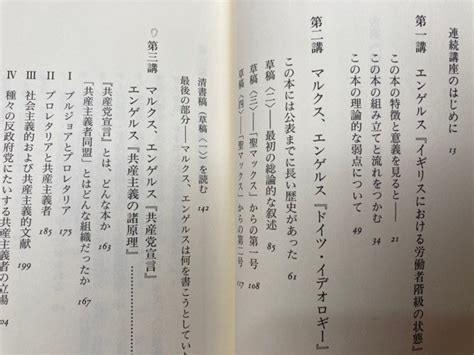 連続講座のはじめに 13
第一講 エンゲルス『イギリスにおける労働者階級の状態』
この本の特徴と意義を見ると── 21
この本の組み立てと流れをつかむ 34
この本の理論的な弱点について 49
第二講 マルクス、エンゲルス『ドイツ・イデオロギー』
この本には公表までに長い歴史があった 61
草稿〈二〉──最初の総論的な叙述 85
草稿〈三〉──「聖マックス」からの第一号 108
草稿〈四〉──「聖マックス」からの第二号 117
清書稿(草稿〈一〉)を読む 142
最後の部分──マルクス、エンゲルスは何を書こうとしてい
第三講 マルクス、エンゲルス『共産党宣言』
エンゲルス『共産主義の諸原理』
『共産党宣言』とは、どんな本か 163
「共産主義者同盟」とはどんな組織だったか 167
Ⅰ ブルジョアとプロレタリア 175
Ⅱ プロレタリアと共産主義者 185
Ⅲ 社会主義的および共産主義的文献 199
Ⅳ 種々の反政府党にたいする共産主義者の立場 204